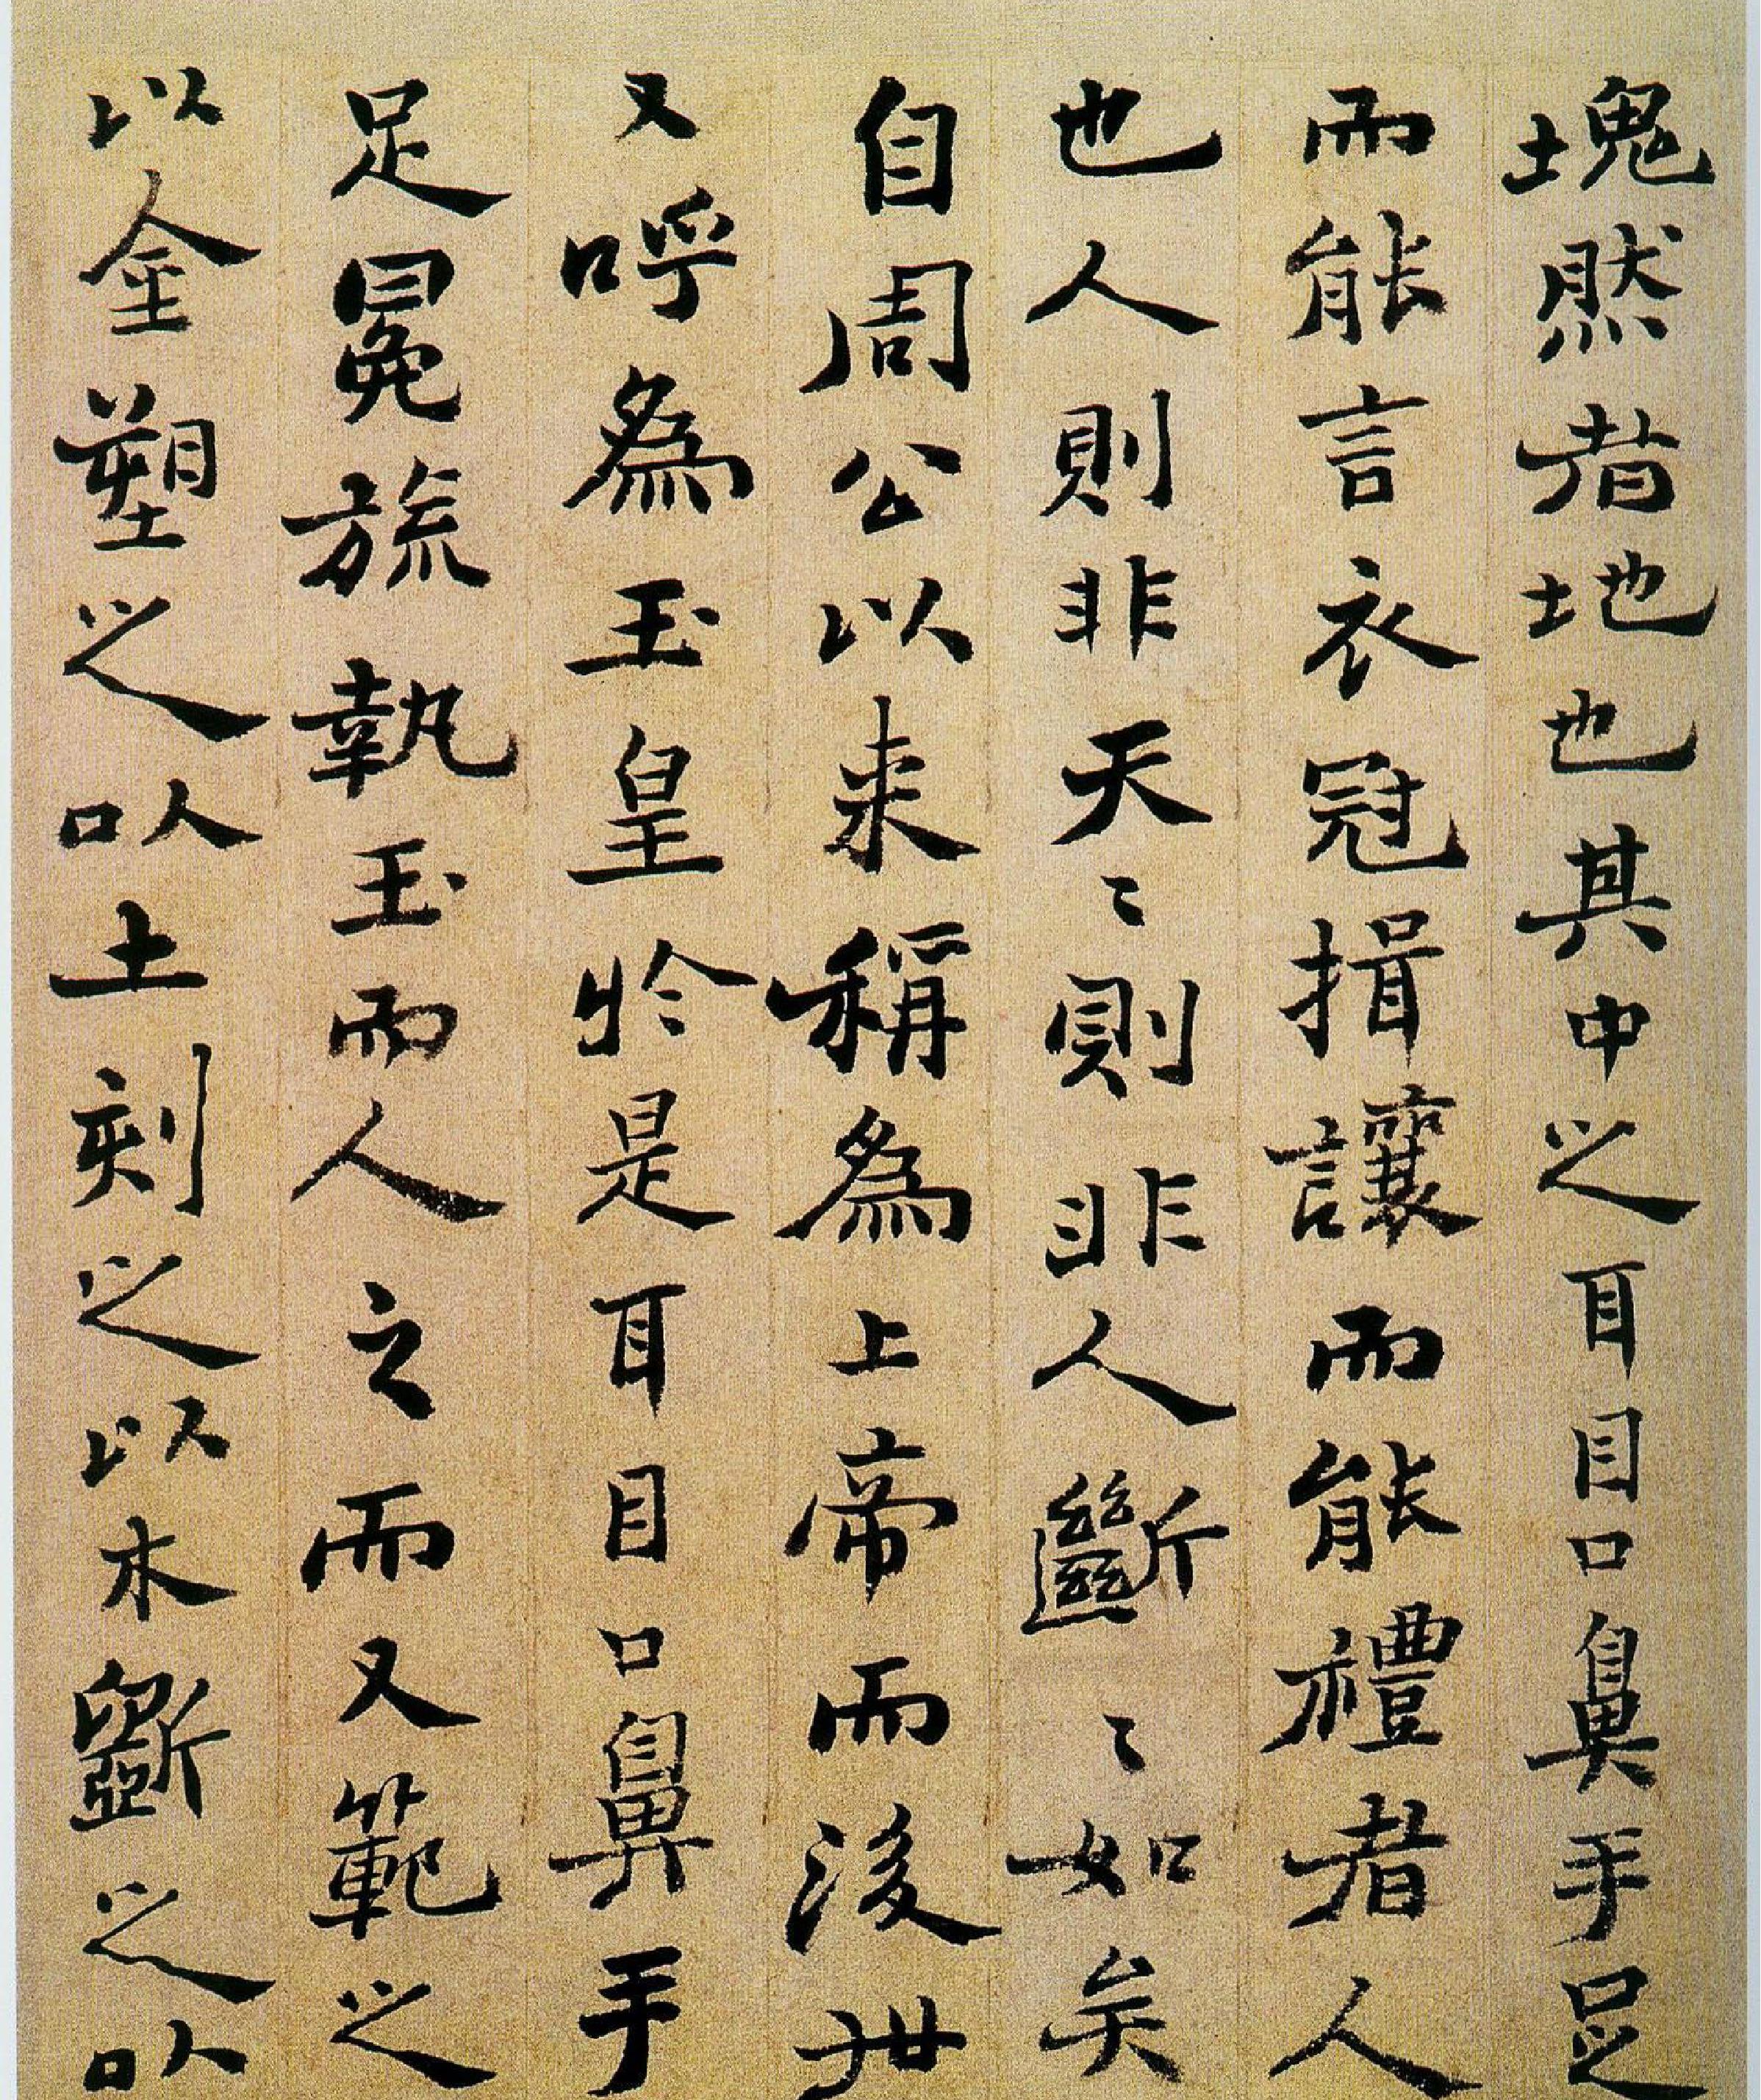 塊然者地也其中之耳目口鼻手足
而能言衣冠揖讓而能禮者人
也人則非天〻則非人斷〻如矣
自周公以来稱為上帝而後世
又呼為玉皇於是耳目口鼻手
足冕旒執玉而人之而又範之
以金塑之以土刻之以木斵之以